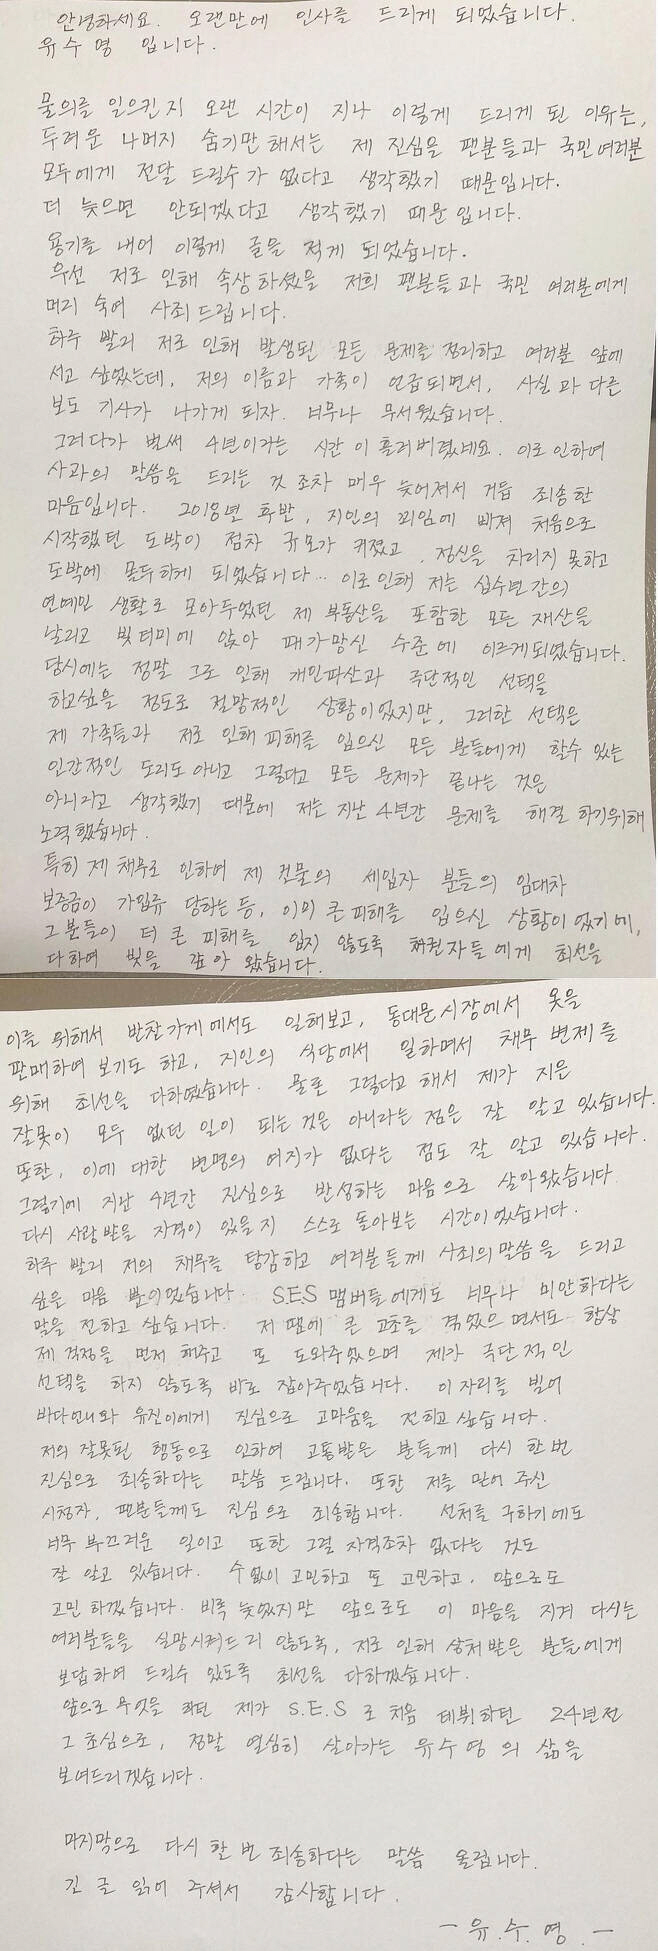 안녕하세요. 오랜만에 인사를 드리게 되었습니다.
유수영 입니다.
물의를 일으킨지 오랜 시간이 지나 이렇게 드리게 된 이유는,
두려운 나머지 숨기만해서는 제 진심을 팬분들과 국민여러분
모두에게 전달 드릴수가 없다고 생각했기 때문입니다.
더 늦으면 안되겠다고 생각했기 때문입니다.
용기를 내어 이렇게 글을 적게 되었습니다.
우선 저로 인해 속상하셨을 저희 팬분들과 국민 여러분에게
머리 숙여 사죄드립니다.
하루 빨리 저로 인해 발생된 모든 문제를 정리하고 여러분 앞에
서고 싶었는데, 저의 이름과 가족이 언급되면서, 사실과 다른
보도 기사가 나가게 되자. 너무나 무서웠습니다.
그러다가 벌써 4년이라는 시간이 흘러버렸네요. 이로인하여
사과의 말씀을 드리는 것 조차 매우 늦어져서 거듭 죄송한
마음입니다. 2018년 후반, 지인의 꾀임에 빠져 처음으로
시작했던 도박이 점차 규모가 커졌고, 정신을 차리지 못하고
도박에 몰두하게 되었습니다... 이로인해 저는 십수년간의
연예인 생활로 모아두었던 제 부동산을 포함한 모든 재산을
날리고 빚더미에 앉아 패가망신 수준에 이르게되었습니다.
당시에는 정말 그로 인해 개인파산과 극단적인 선택을
하고싶을 정도로 절망적인 상황이었지만, 그러한 선택은
제 가족들과 저로 인해 피해를 입으신 모든 분들에게 할수 있는
인간적인 도리도 아니고 그렇다고 모든 문제가 끝나는 것은
아니라고 생각했기 때문에 저는 지난 4년간 문제를 해결 하기위해
노력했습니다.
특히 제 채무로 인하여 제 건물의 세입자 분들의 임대차
보증금이 가압류 당하는등, 이미 큰 피해를 입으신 상황이었기에,
그분들이 더 큰 피해를 입지 않도록 채권자들에게 최선을
다하여 빚을 갚아 왔습니다.
이를 위해서 반찬가게에서도 일해보고, 동대문시장에서 옷을
판매하여 보기도 하고, 지인의 식당에서 일하면서 채무 변제를
위해 최선을 다하였습니다. 물론 그렇다고 해서 제가 지은
잘못이 모두 없던 일이 되는 것은 아니라는 점은 잘 알고 있습니다.
또한, 이에 대한 변명의 여지가 없다는 점도 잘 알고 있습니다.
그렇기에 지난 4년간 진심으로 반성하는 마음으로 살아왔습니다.
다시 사랑받을 자격이 있을지 스스로 돌아보는 시간이었습니다.
하루 빨리 저의 채무를 탕감하고 여러분들께 사죄의말씀을 드리고
싶은 마음 뿐이었습니다. S.E.S 맴버들에게도 너무나 미안하다는
말을 전하고 싶습니다. 저 땜에 큰 고초를 겪었으면서도 항상
제 걱정을 먼저 해주고 또 도와주었으며 제가 극단적인
선택을 하지 않도록 바로 잡아주었습니다. 이 자리를 빌어
바다언니와 유진이에게 진심으로 고마움을 전하고싶습니다.
저의 잘못된 행동으로 인하여 고통받은 분들께 다시 한번
진심으로 죄송하다는 말씀 드립니다. 또한 저를 믿어 주신
시청자, 팬분들께도 진심으로 죄송합니다. 선처를 구하기에도
너무 부끄러운 일이고 또한 그럴 자격조차 없다는 것도
잘 알고 있습니다. 수없이 고민하고 또 고민하고, 앞으로도
고민 하겠습니다. 비록 늦었지만 앞으로도 이 마음을 지켜 다시는
여러분들을 실망시켜드리 않도록, 저로 인해 상처받은 분들에게
보답하여 드릴수 있도록 최선을 다하겠습니다.
앞으로 무엇을 하던 제가 S.E.S 로 처음 데뷔하던 24년전
그 초심으로, 정말 열심히 살아가는 유수영의 삶을
보여드리겠습니다.
마지막으로 다시 한 번 죄송하다는 말씀 올립니다.
긴 글 읽어 주셔서 감사합니다.
- 유.수.영. -